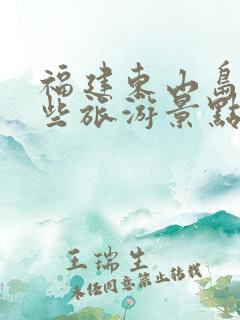 福建东山島
些旅游景點
王瑞生
未经同意禁止转载